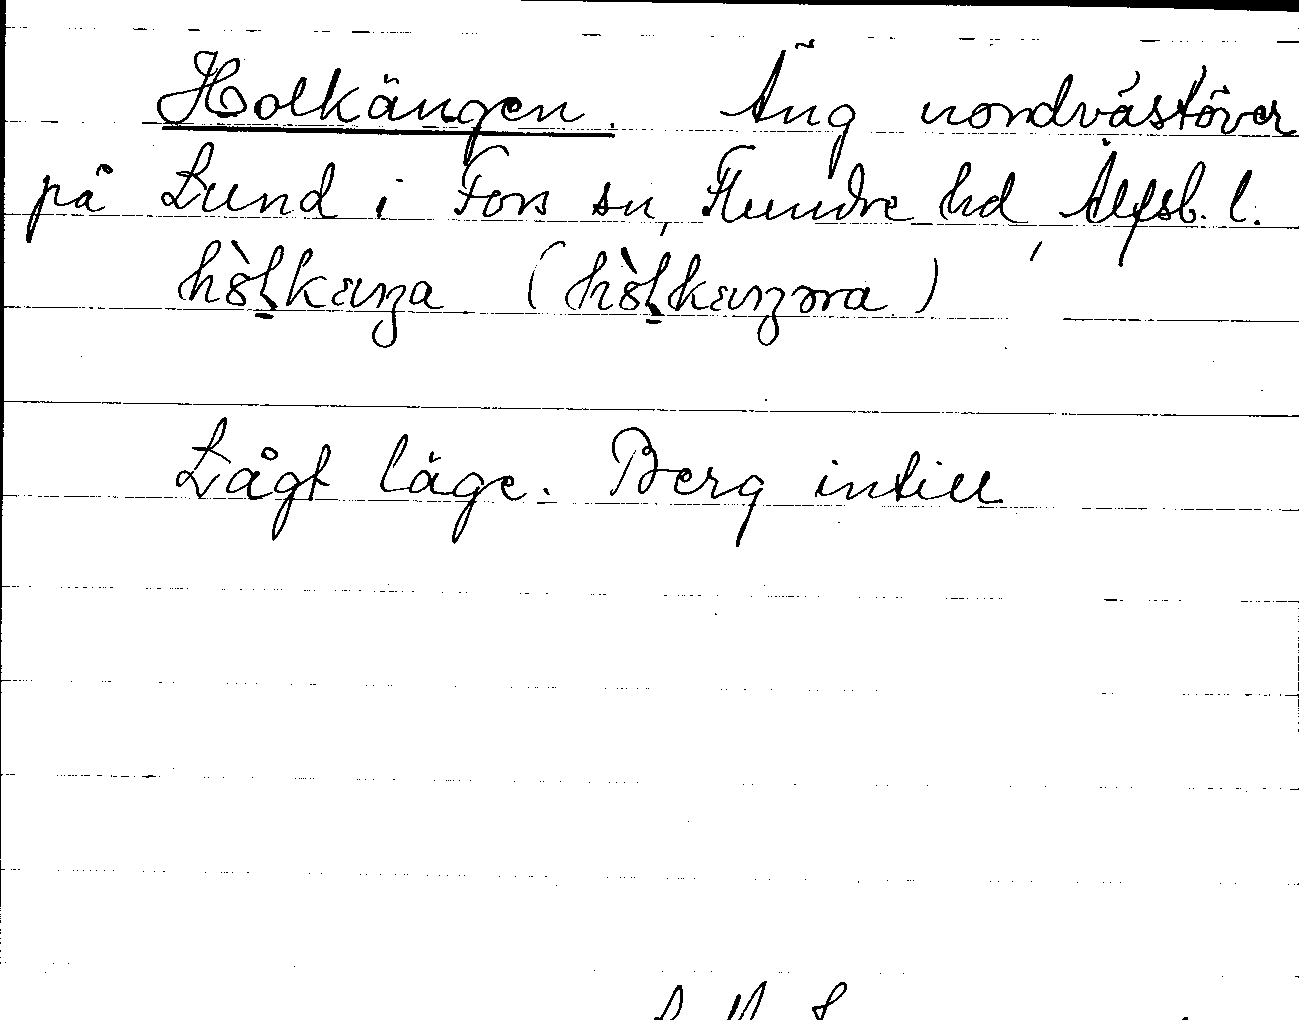 Holkängen. Äng nordvästöver
på Lund i Fors sn, Flundre hd, Älfsb. l.
Lågt läge. Berg intill